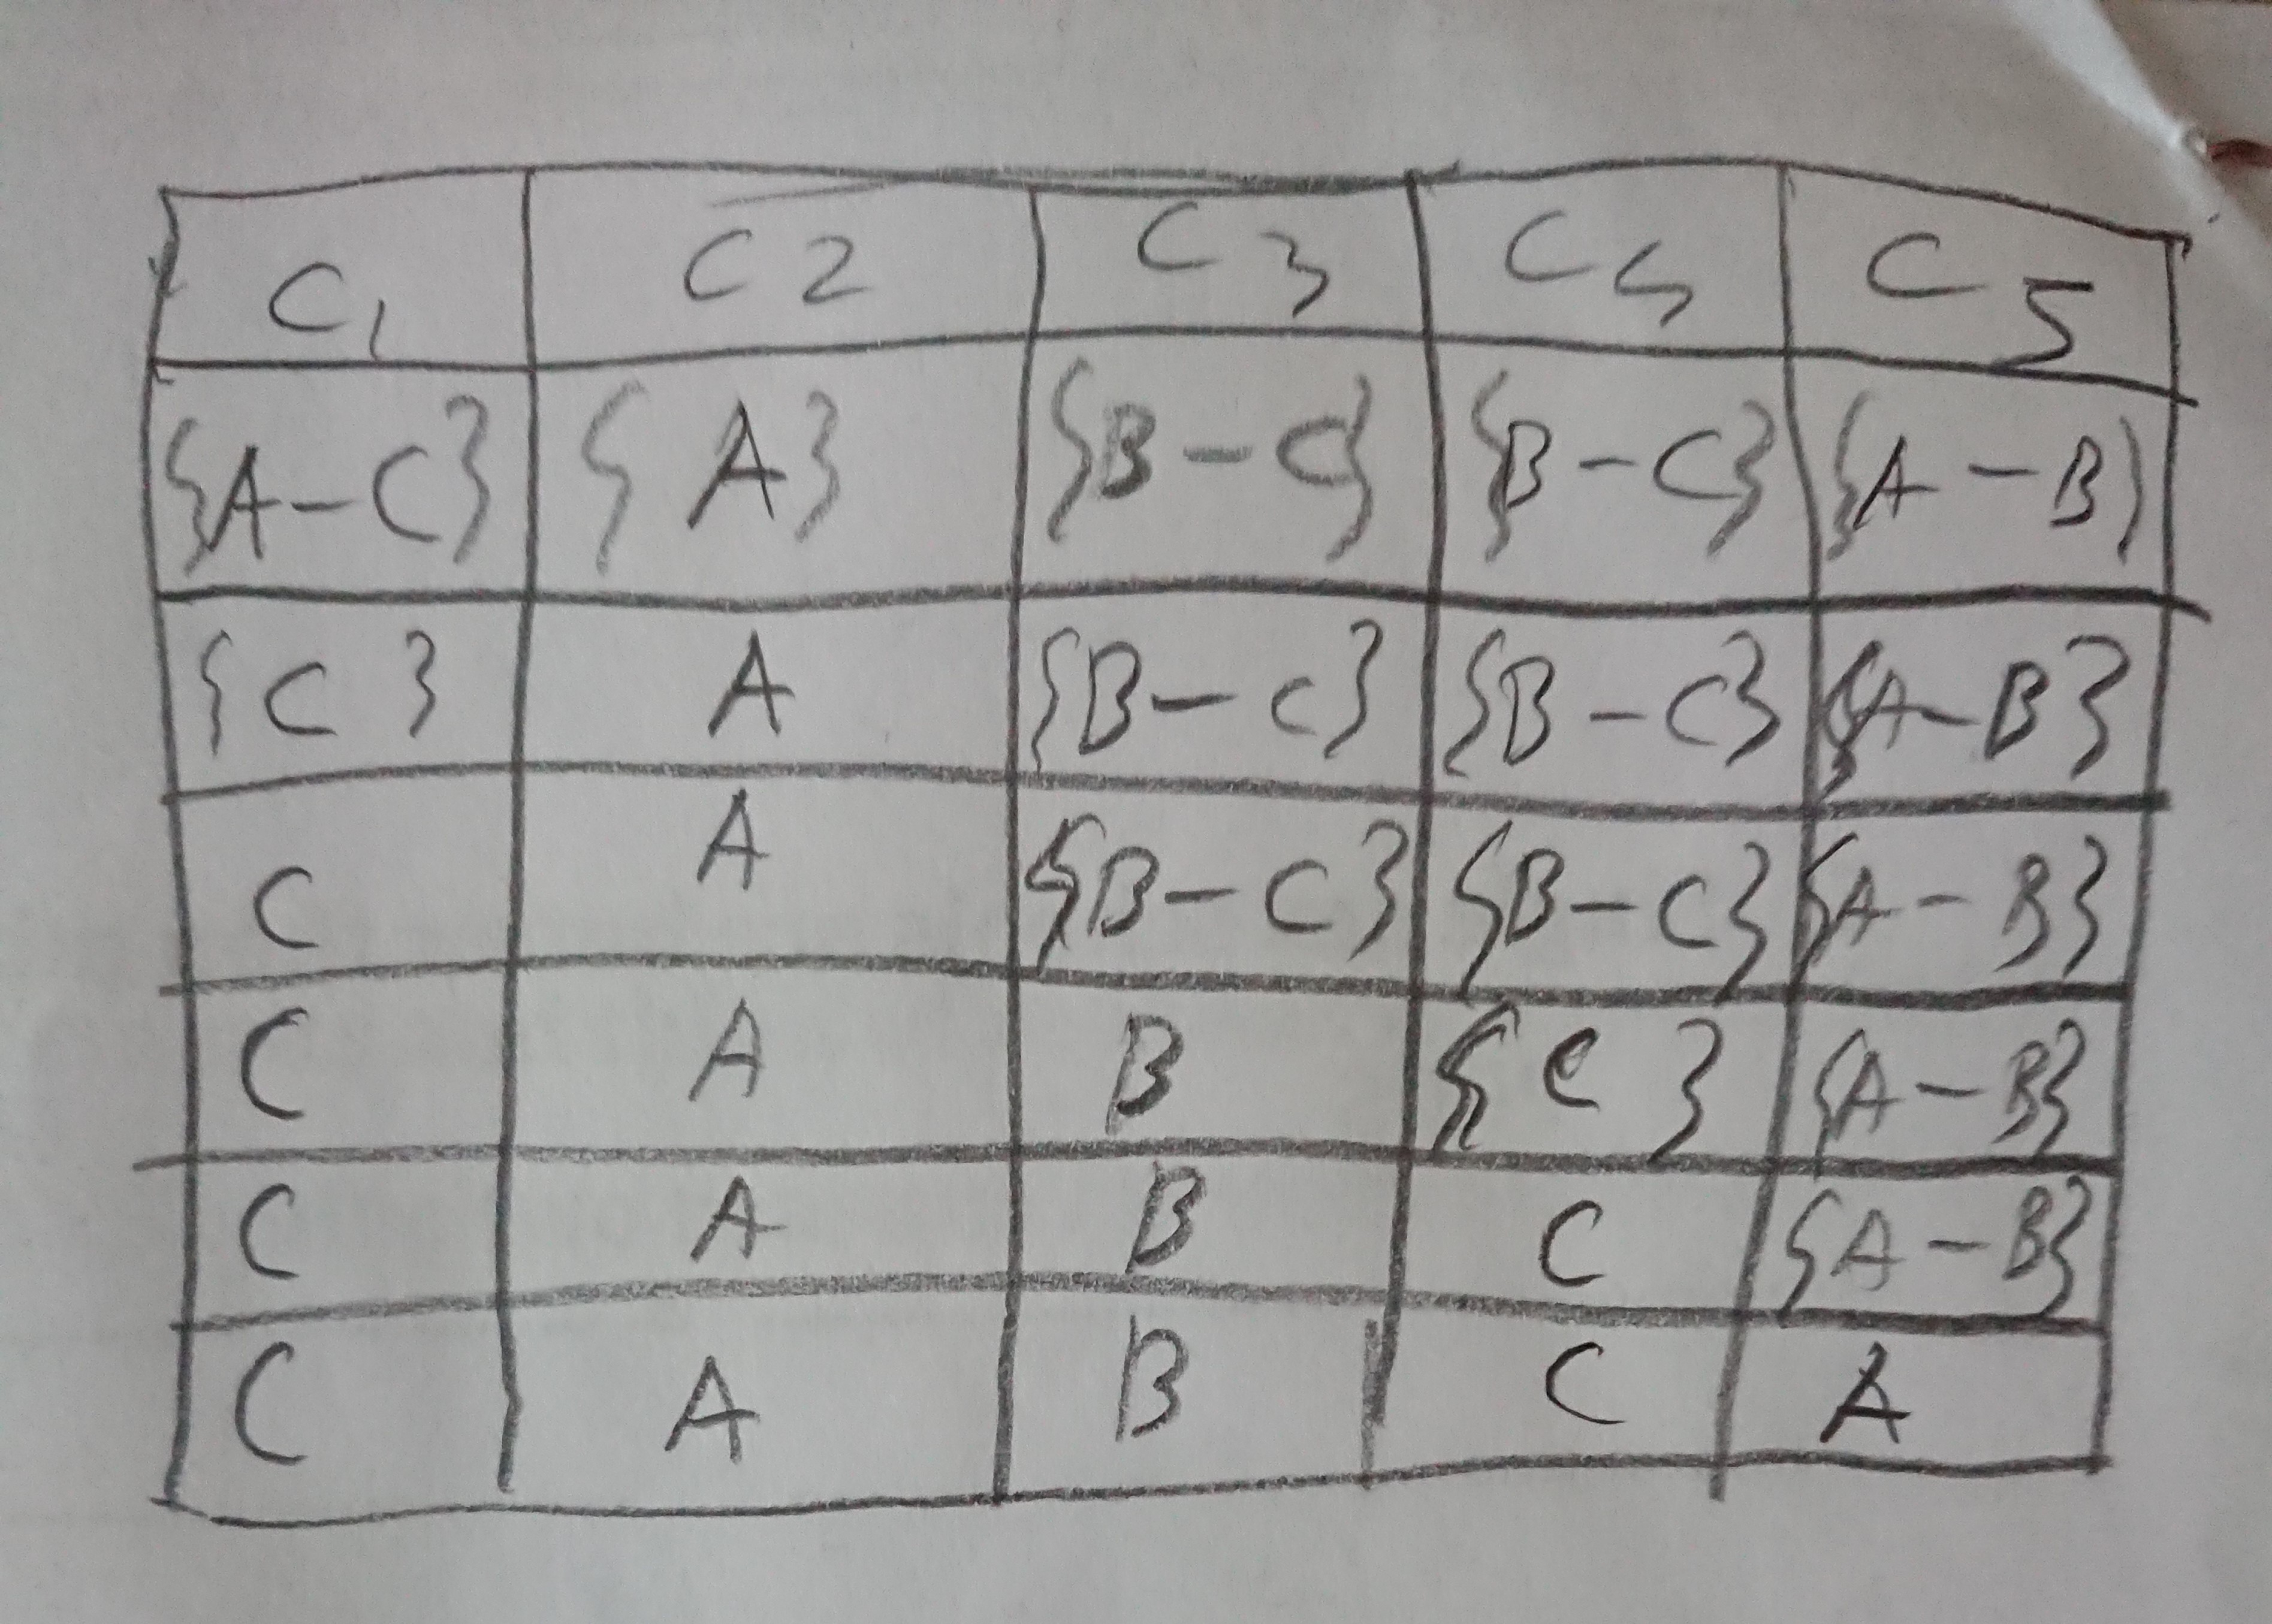 C1 C2 C3 C4 C5
{A-C} {A} {B-C} {B-C} {A-B}
{C} A {B-C} {B-C} {A-B}
C A {B-C} {B-C} {A-B}
C A B {C} {A-B}
C A B C {A-B}
C A B C A